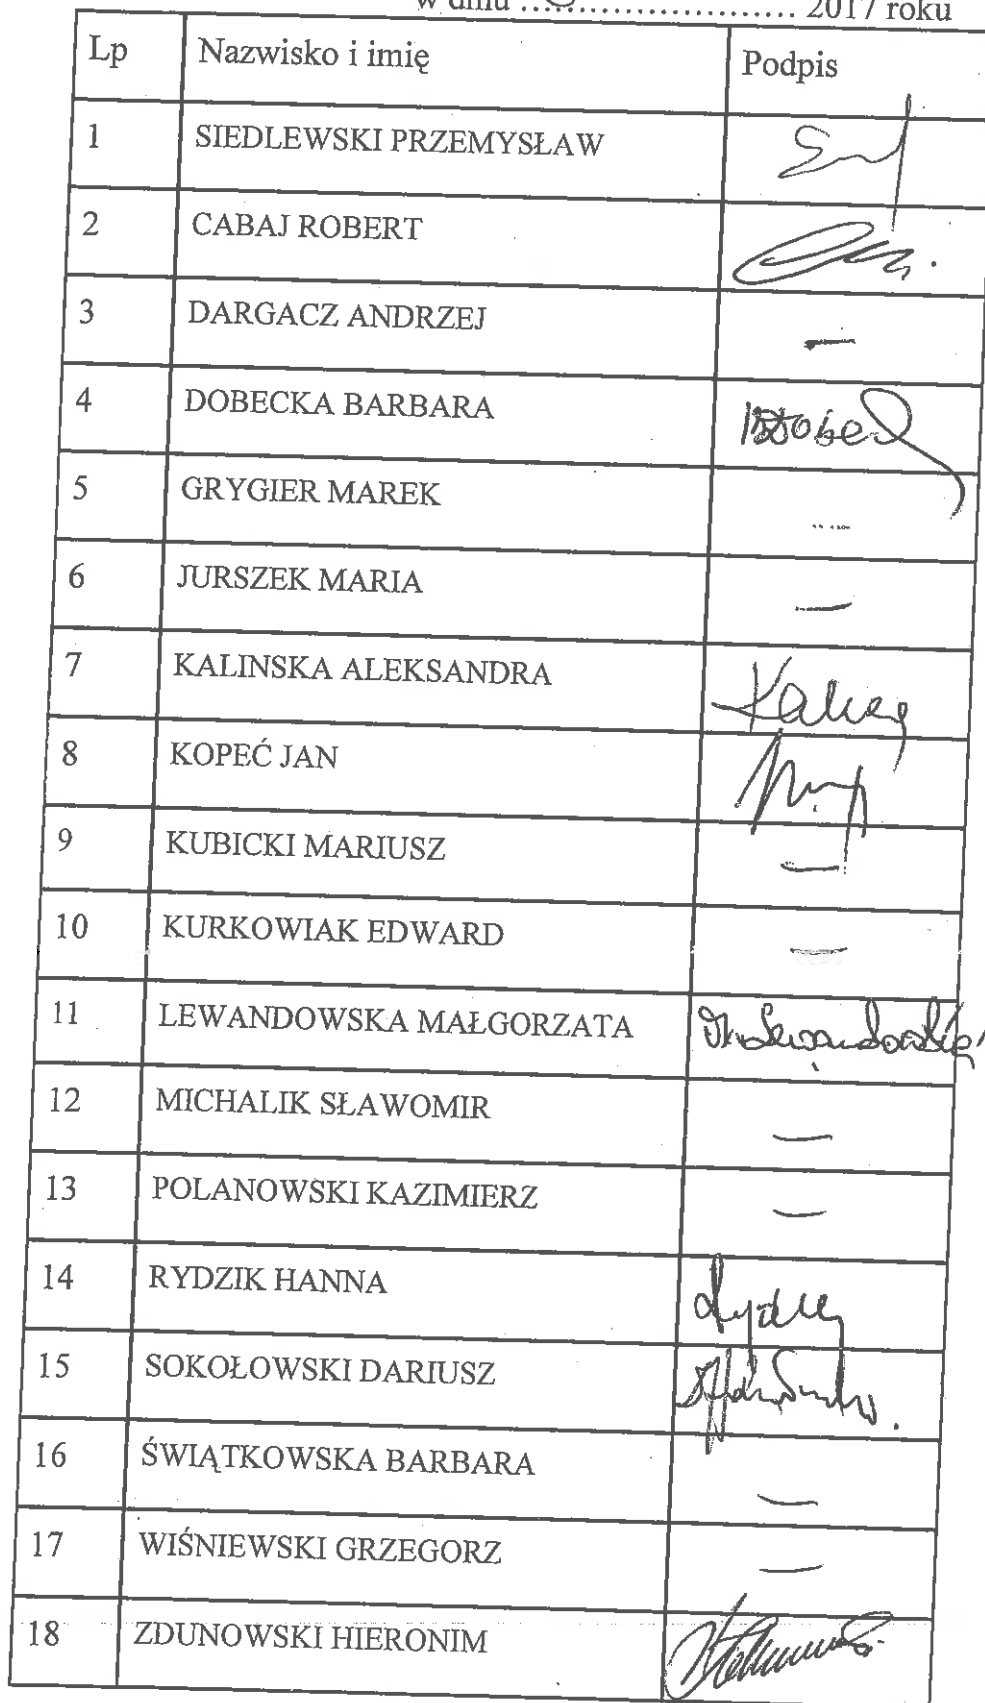 w dniu ........................ 2017 roku
Lp Nazwisko i imię Podpis
1 SIEDLEWSKI PRZEMYSŁAW
2 CABAJ ROBERT
3 DARGACZ ANDRZEJ —
4 DOBECKA BARBARA
5 GRYGIER MAREK
6 JURSZEK MARIA —
7 KALINSKA ALEKSANDRA
8 KOPEĆ JAN
9 KUBICKI MARIUSZ —
10 KURKOWIAK EDWARD —
11 LEWANDOWSKA MAŁGORZATA
12 MICHALIK SŁAWOMIR —
13 POLANOWSKI KAZIMIERZ —
14 RYDZIK HANNA
15 SOKOŁOWSKI DARIUSZ
16 ŚWIĄTKOWSKA BARBARA —
17 WIŚNIEWSKI GRZEGORZ —
18 ZDUNOWSKI HIERONIM